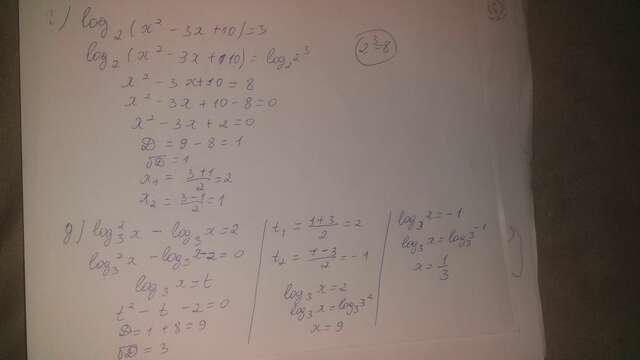 ) log₂(x² - 3x + 10) = 3
log₂(x² - 3x + 10) = log₂2³
2³=8
x² - 3x + 10 = 8
x² - 3x + 10 - 8 = 0
x² - 3x + 2 = 0
D = 9 - 8 = 1
√D = 1
x₁ = (3+1)/2 = 2
x₂ = (3-1)/2 = 1
g) log₃²x - log₃x = 2
log₃²x - log₃x - 2 = 0
log₃x = t
t² - t - 2 = 0
D = 1 + 8 = 9
√D = 3
t₁ = (1+3)/2 = 2
t₂ = (1-3)/2 = -1
log₃x = 2
log₃x = log₃3²
x = 9
log₃x = -1
log₃x = log₃3⁻¹
x = 1/3